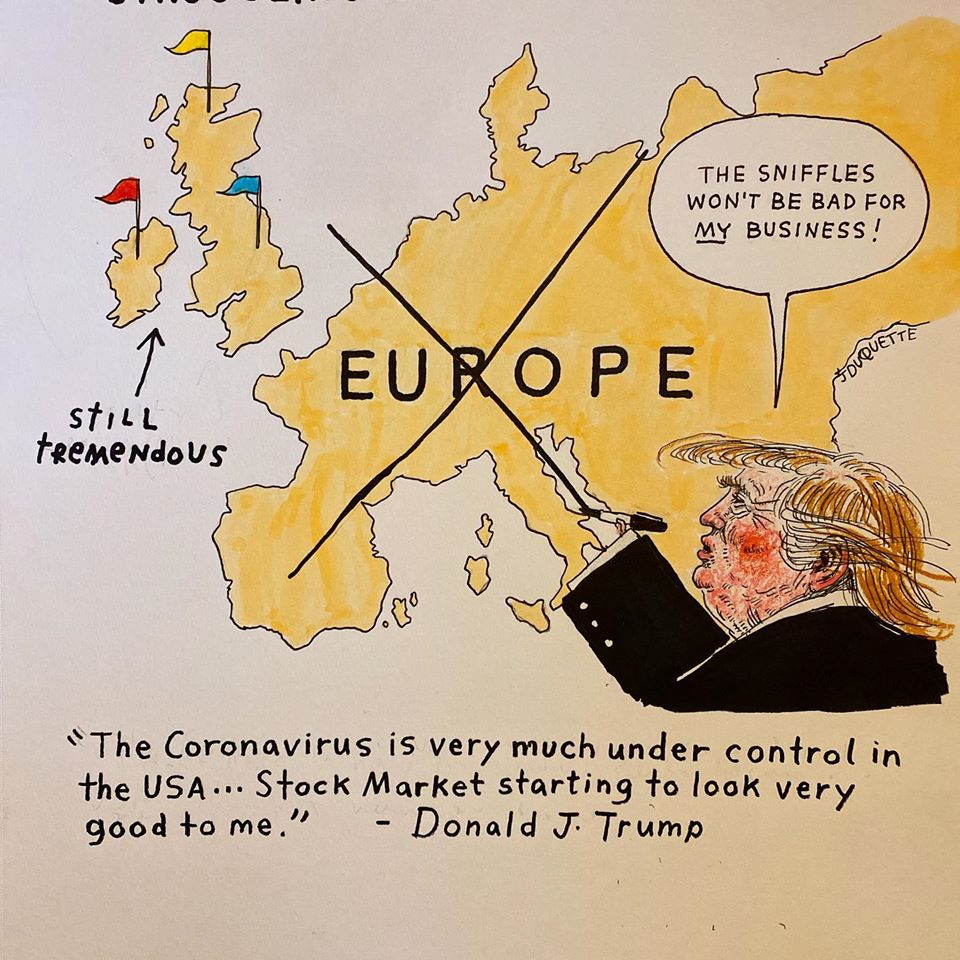 THE SNIFFLES
WON'T BE BAD FOR
MY BUSINESS!
J DUQUETTE
EUROPE
STILL
TREMENDOUS
"The Coronavirus is very much under control in
the USA... Stock Market starting to look very
good to me." - Donald J. Trump